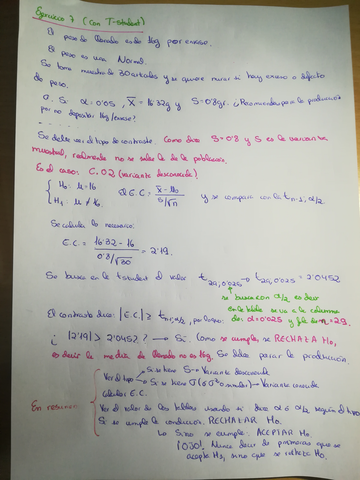 Ejercicio 7 (con T-student)
El peso de llenado es de 16g por envase.
El peso es una Normal.
Se toma muestra de 30 artículos y se quiere mirar si hay exceso o defecto
de peso.
a. Si α=0.05, x̄ = 16.32g y S=0.8gr. ¿Recomiendas parar la producción
por no depositar 16g/envase?
- - - - -
Se debe ver el tipo de contraste. Como dice S=0.8 y S es la varianza
muestral, realmente no se sabe la de la población.
Es el caso: C.02 (varianza desconocida)
H₀: μ=16
H₁: μ≠16.
El E.C. = x̄-μ₀ / S/√n y se compara con la t n-1, α/2
Se calcula lo necesario:
E.C. = 16.32 - 16 / 0.8/√30 = 2.19.
Se busca en la t student el valor t 29,0.025 → t 29,0.025 = 2.0452
se busca con α/2, es decir
en la tabla se va a la columna
de α=0.025 y fila de n=29.
El contraste dice: |E.C.| ≥ t n-1,α/2, por lo que:
¿ |2.19| ≥ 2.0452? → Sí. Como se cumple, se RECHAZA H₀,
es decir la media de llenado no es 16g. Se debe parar la producción
En resumen:
Ver el tipo
Si se tiene S → Varianza desconocida
Si se tiene σ (σ² o similar) → Varianza conocida
Calcular E.C.
Ver el valor de las tablas usando si dice α o α/2 según el tipo
Si se cumple la condición: RECHAZAR H₀.
Si no se cumple: ACEPTAR H₀.
¡OJO! Nunca decir de primeras que se
acepta H₁, sino que se rechaza H₀.